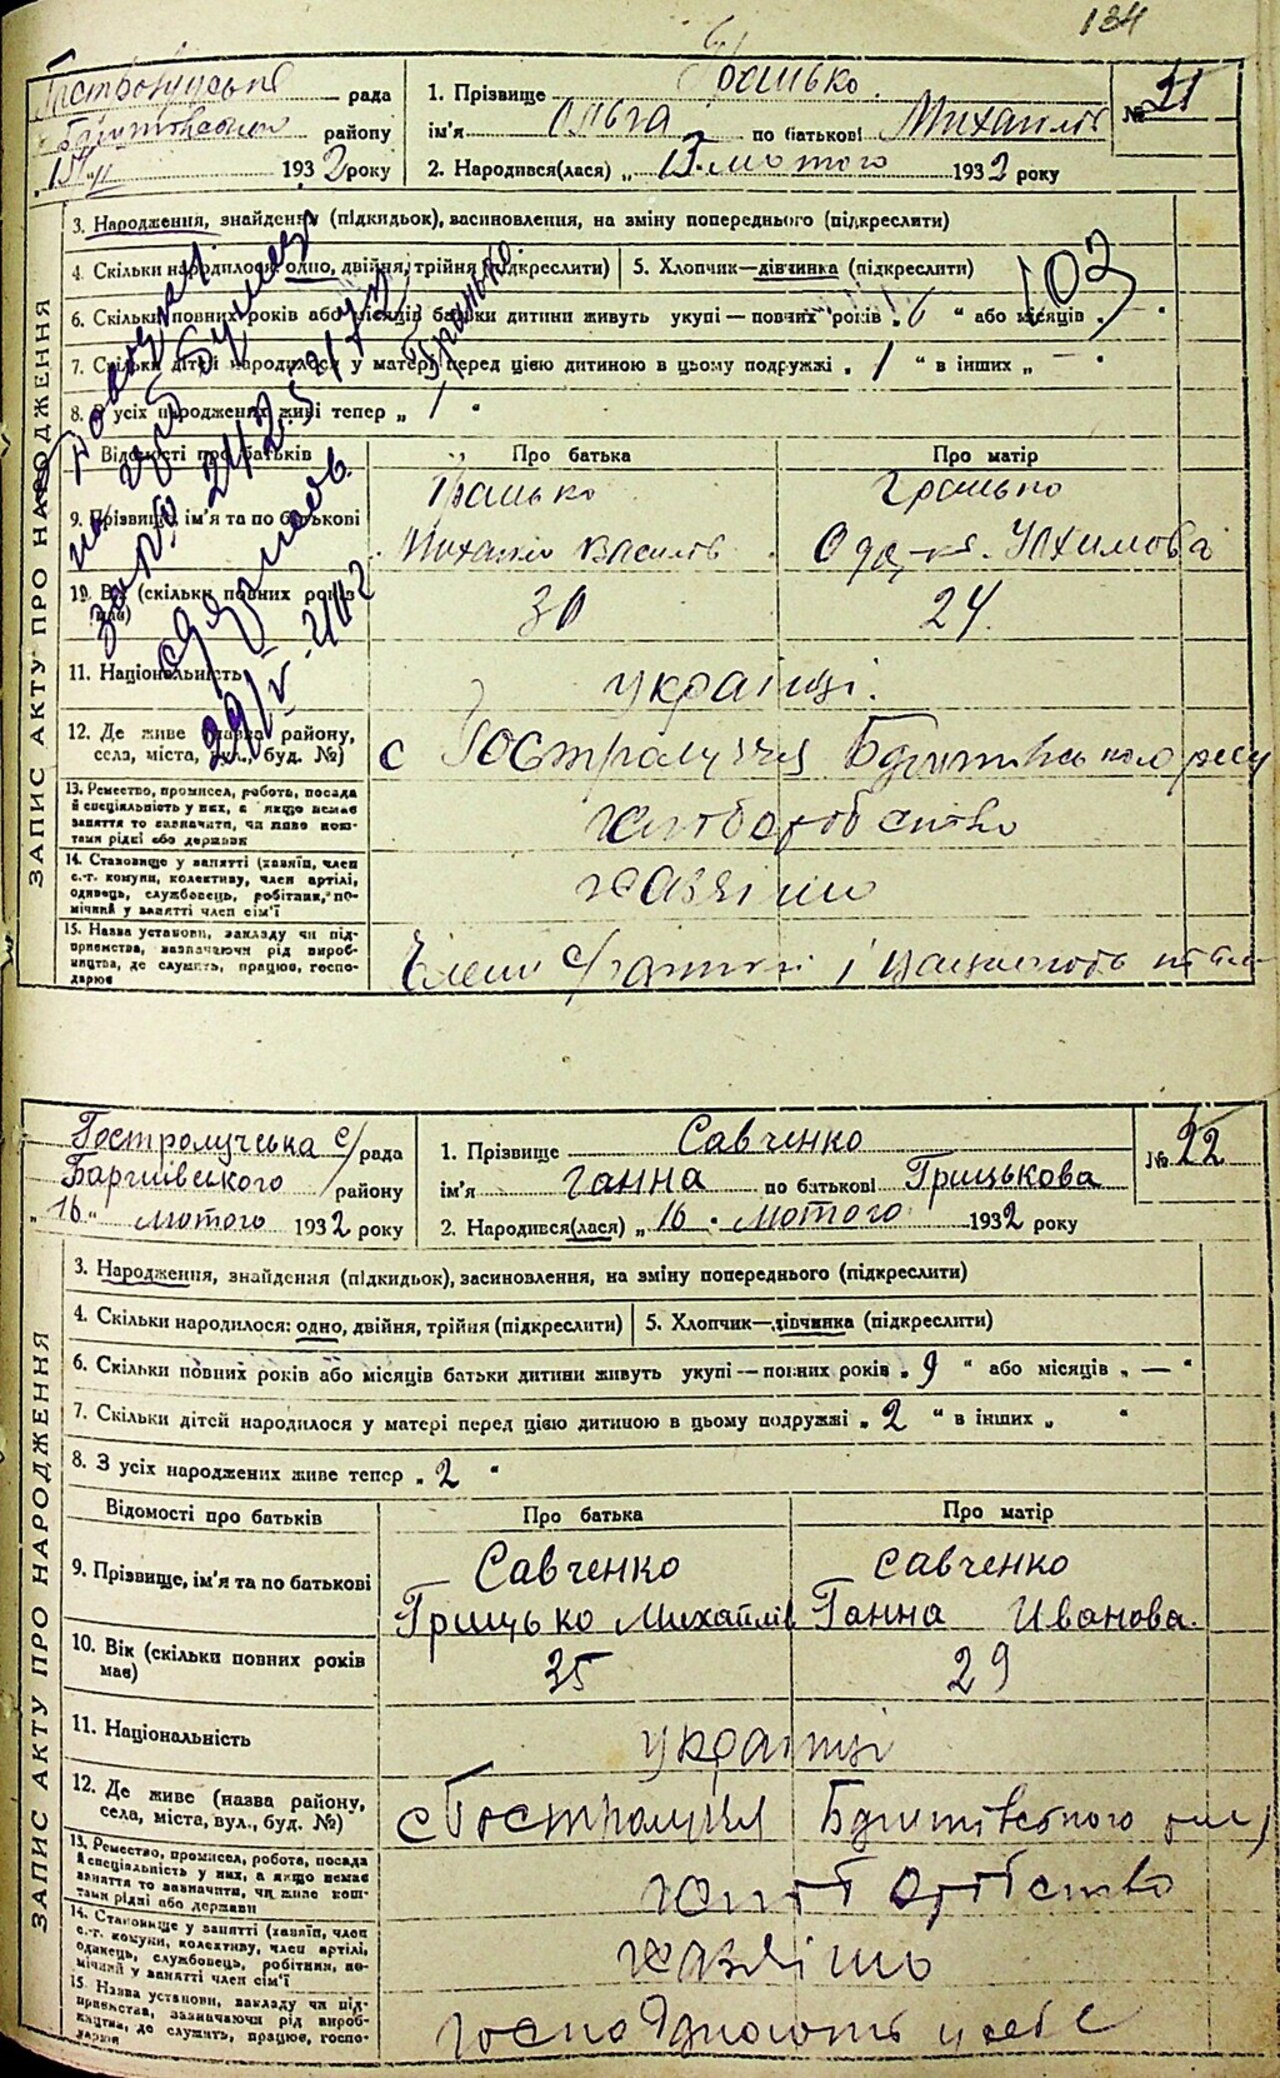 134
рада
1. Прізвище
№ 21
району
ім'я Ольга по батькові Михайлів
193 2 року
2. Народився(лася) „ 13 лютого 193 2 року
ЗАПИС АКТУ ПРО НАРОДЖЕННЯ
3. Народження, знайдення (підкидьок), засиновлення, на зміну попереднього (підкреслити)
4. Скільки народилося: одно, двійня, трійня (підкреслити) 5. Хлопчик—дівчинка (підкреслити)
103
6. Скільки повних років або місяців батьки дитини живуть укупі — повних років „ 6 “ або місяців „ — “
7. Скільки дітей народилося у матері перед цією дитиною в цьому подружжі „ 1 “ в інших „ — “
8. З усіх народжених живі тепер „ 1 “
Відомості про батьків Про батька Про матір
9. Прізвище, ім'я та по батькові
Михайло Василів
10. Вік (скільки повних років має) 30 24.
11. Національність українці.
12. Де живе (назва району,
села, міста, вул., буд. №)
с Гостролуччя
13. Ремество, промисел, робота, посада
й спеціяльність у них, а якщо немає
заняття то зазначити, чи живе кош-
тами рідні або держави
хліборобство
14. Становище у занятті (хазяїн, член
с.-г. комуни, колективу, член артілі,
одинець, службовець, робітник, по-
мічний у занятті член сім'ї
хазяїни
15. Назва установи, закладу чи під-
приємства, зазначаючи рід вироб-
ництва, де служить, працює, госпо-
дарює
Гостролучська с/рада
1. Прізвище Савченко
№ 22
Баришівського району
ім'я Ганна по батькові Грицькова
„ 16 “ лютого 193 2 року
2. Народився(лася) „ 16 “ лютого 193 2 року
ЗАПИС АКТУ ПРО НАРОДЖЕННЯ
3. Народження, знайдення (підкидьок), засиновлення, на зміну попереднього (підкреслити)
4. Скільки народилося: одно, двійня, трійня (підкреслити) 5. Хлопчик—дівчинка (підкреслити)
6. Скільки повних років або місяців батьки дитини живуть укупі — повних років „ 9 “ або місяців „ — “
7. Скільки дітей народилося у матері перед цією дитиною в цьому подружжі „ 2 “ в інших „ “
8. З усіх народжених живе тепер „ 2 “
Відомості про батьків Про батька Про матір
9. Прізвище, ім'я та по батькові
Савченко Савченко
Грицько Михайлів Ганна Иванова.
10. Вік (скільки повних років
має)
35 29
11. Національність українці
12. Де живе (назва району,
села, міста, вул., буд. №)
с Гостролуччя
13. Ремество, промисел, робота, посада
й спеціяльність у них, а якщо немає
заняття то зазначити, чи живе кош-
тами рідні або держави
хліборобство
14. Становище у занятті (хазяїн, член
с.-г. комуни, колективу, член артілі,
одинець, службовець, робітник, по-
мічний у занятті член сім'ї
хазяїни
15. Назва установи, закладу чи під-
приємства, зазначаючи рід вироб-
ництва, де служить, працює, госпо-
дарює
господарюють у себе